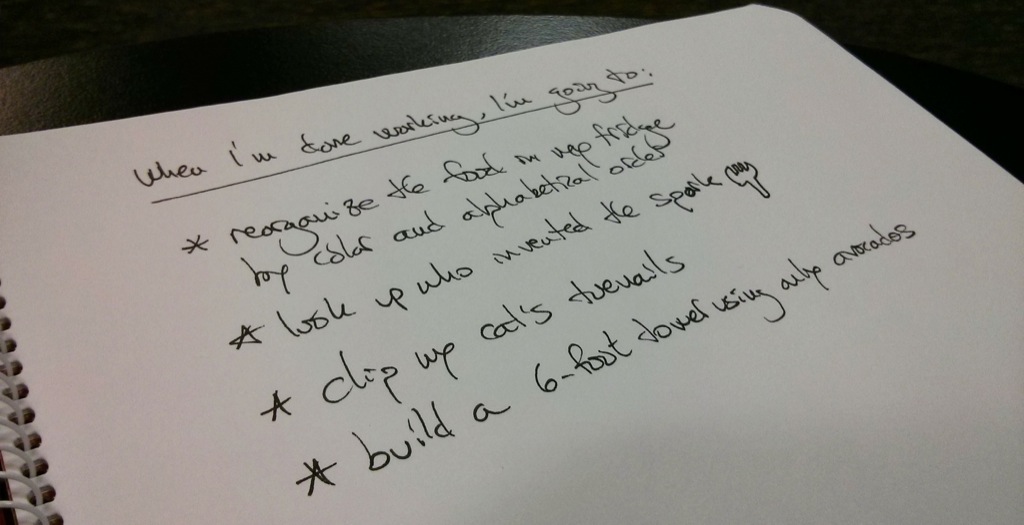 when i'm done working, I'm going to:
* reorganize the food in my fridge
by color and alphabetical order
* look up who invented the spork
* clip my cat's toenails
* build a 6-foot tower using only avocados